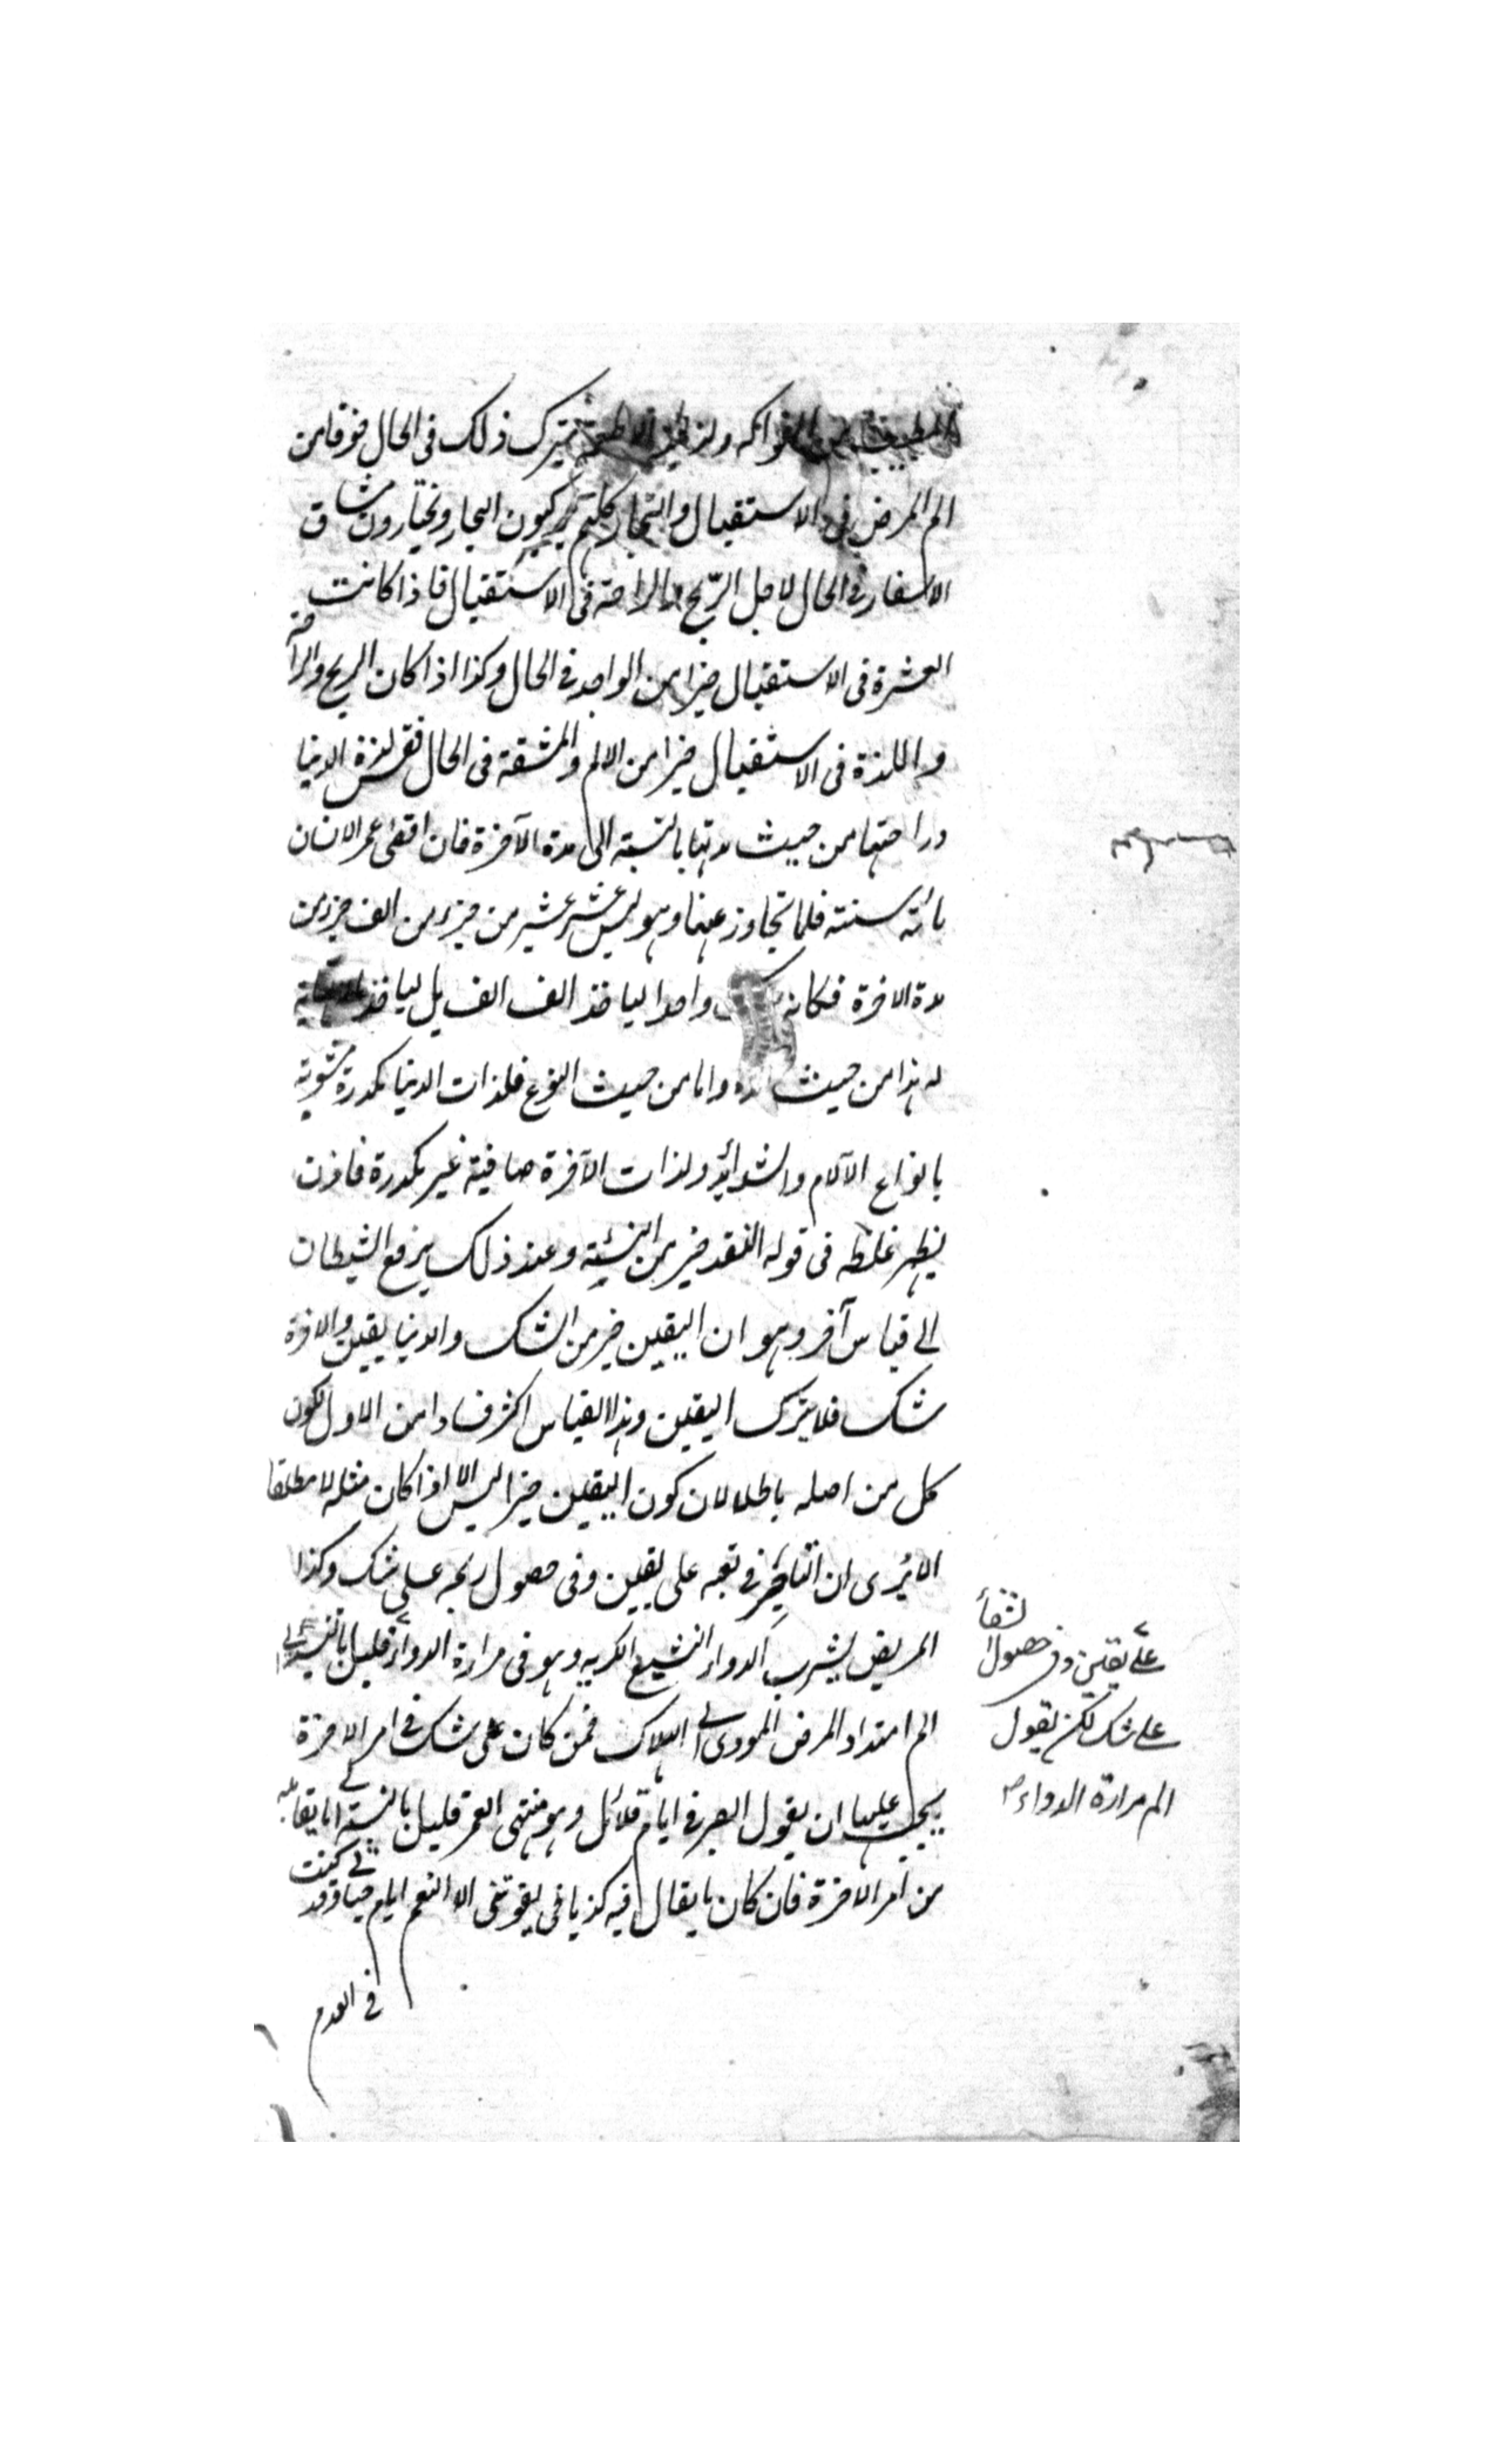 الطبيب عن الفواكه ولذائذ الاطعمة يترك ذلك فى الحال خوفا من
الم المرض فى الاستقبال والتجار كلهم يركبون البحار ويختارون مشاق
الاسفار فى الحال لاجل الربح والراحة فى الاستقبال فاذا كانت
العشرة فى الاستقبال خيرا من الواحد فى الحال وكذا اذا كان الربح والراحة
واللذة فى الاستقبال خيرا من الالم والمشقة فى الحال فقس لذة الدنيا
وراحتها من حيث مدتها بالنسبة الى مدة الآخرة فان اقصى عمر الانسان
مائة سنة فلما تجاوز عنها وهو ليس عشر عشير من جزء من الف جزء من
مدة الاخرة فكانه واحدا لياخذ الف الف بل لياخذ
له هذا من حيث المدة واما من حيث النوع فلذات الدنيا مكدرة مشوبة
بانواع الآلام والشدائد ولذات الآخرة صافية غير مكدرة فاذن
يظهر غلطه فى قوله النقد خير من النسئة وعند ذلك يرفع الشيطان
الى قياس آخر وهو ان اليقين خير من الشك والدنيا يقين والاخرة
شك فلا يترك اليقين وهذا القياس اكثر فسادا من الاول لكون
كل من اصليه باطلا لان كون اليقين خيرا ليس الا اذا كان مثله لا مطلقا
الا يرى ان التاجر فى تعبه على يقين وفى حصول ربحه على شك وكذا
المريض يشرب الدواء البشيع الكريه وهو فى مرارة الدواء قليل بالنسبة الى
الم امتداد المرض المودى الى الهلاك فمن كان على شك فى امر الاخرة
يجب عليه ان يقول الصبر فى ايام قلائل وهو منتهى العمر قليل بالنسبة الى ما يقال
من امر الاخرة فان كان ما يقال فيه كذبا فما يفوتنى الا التنعم ايام حياتى وقد كنت
فى العدم
على يقين وفى حصول الشفاء
على شك لكن يقول
الم مرارة الدواء صح